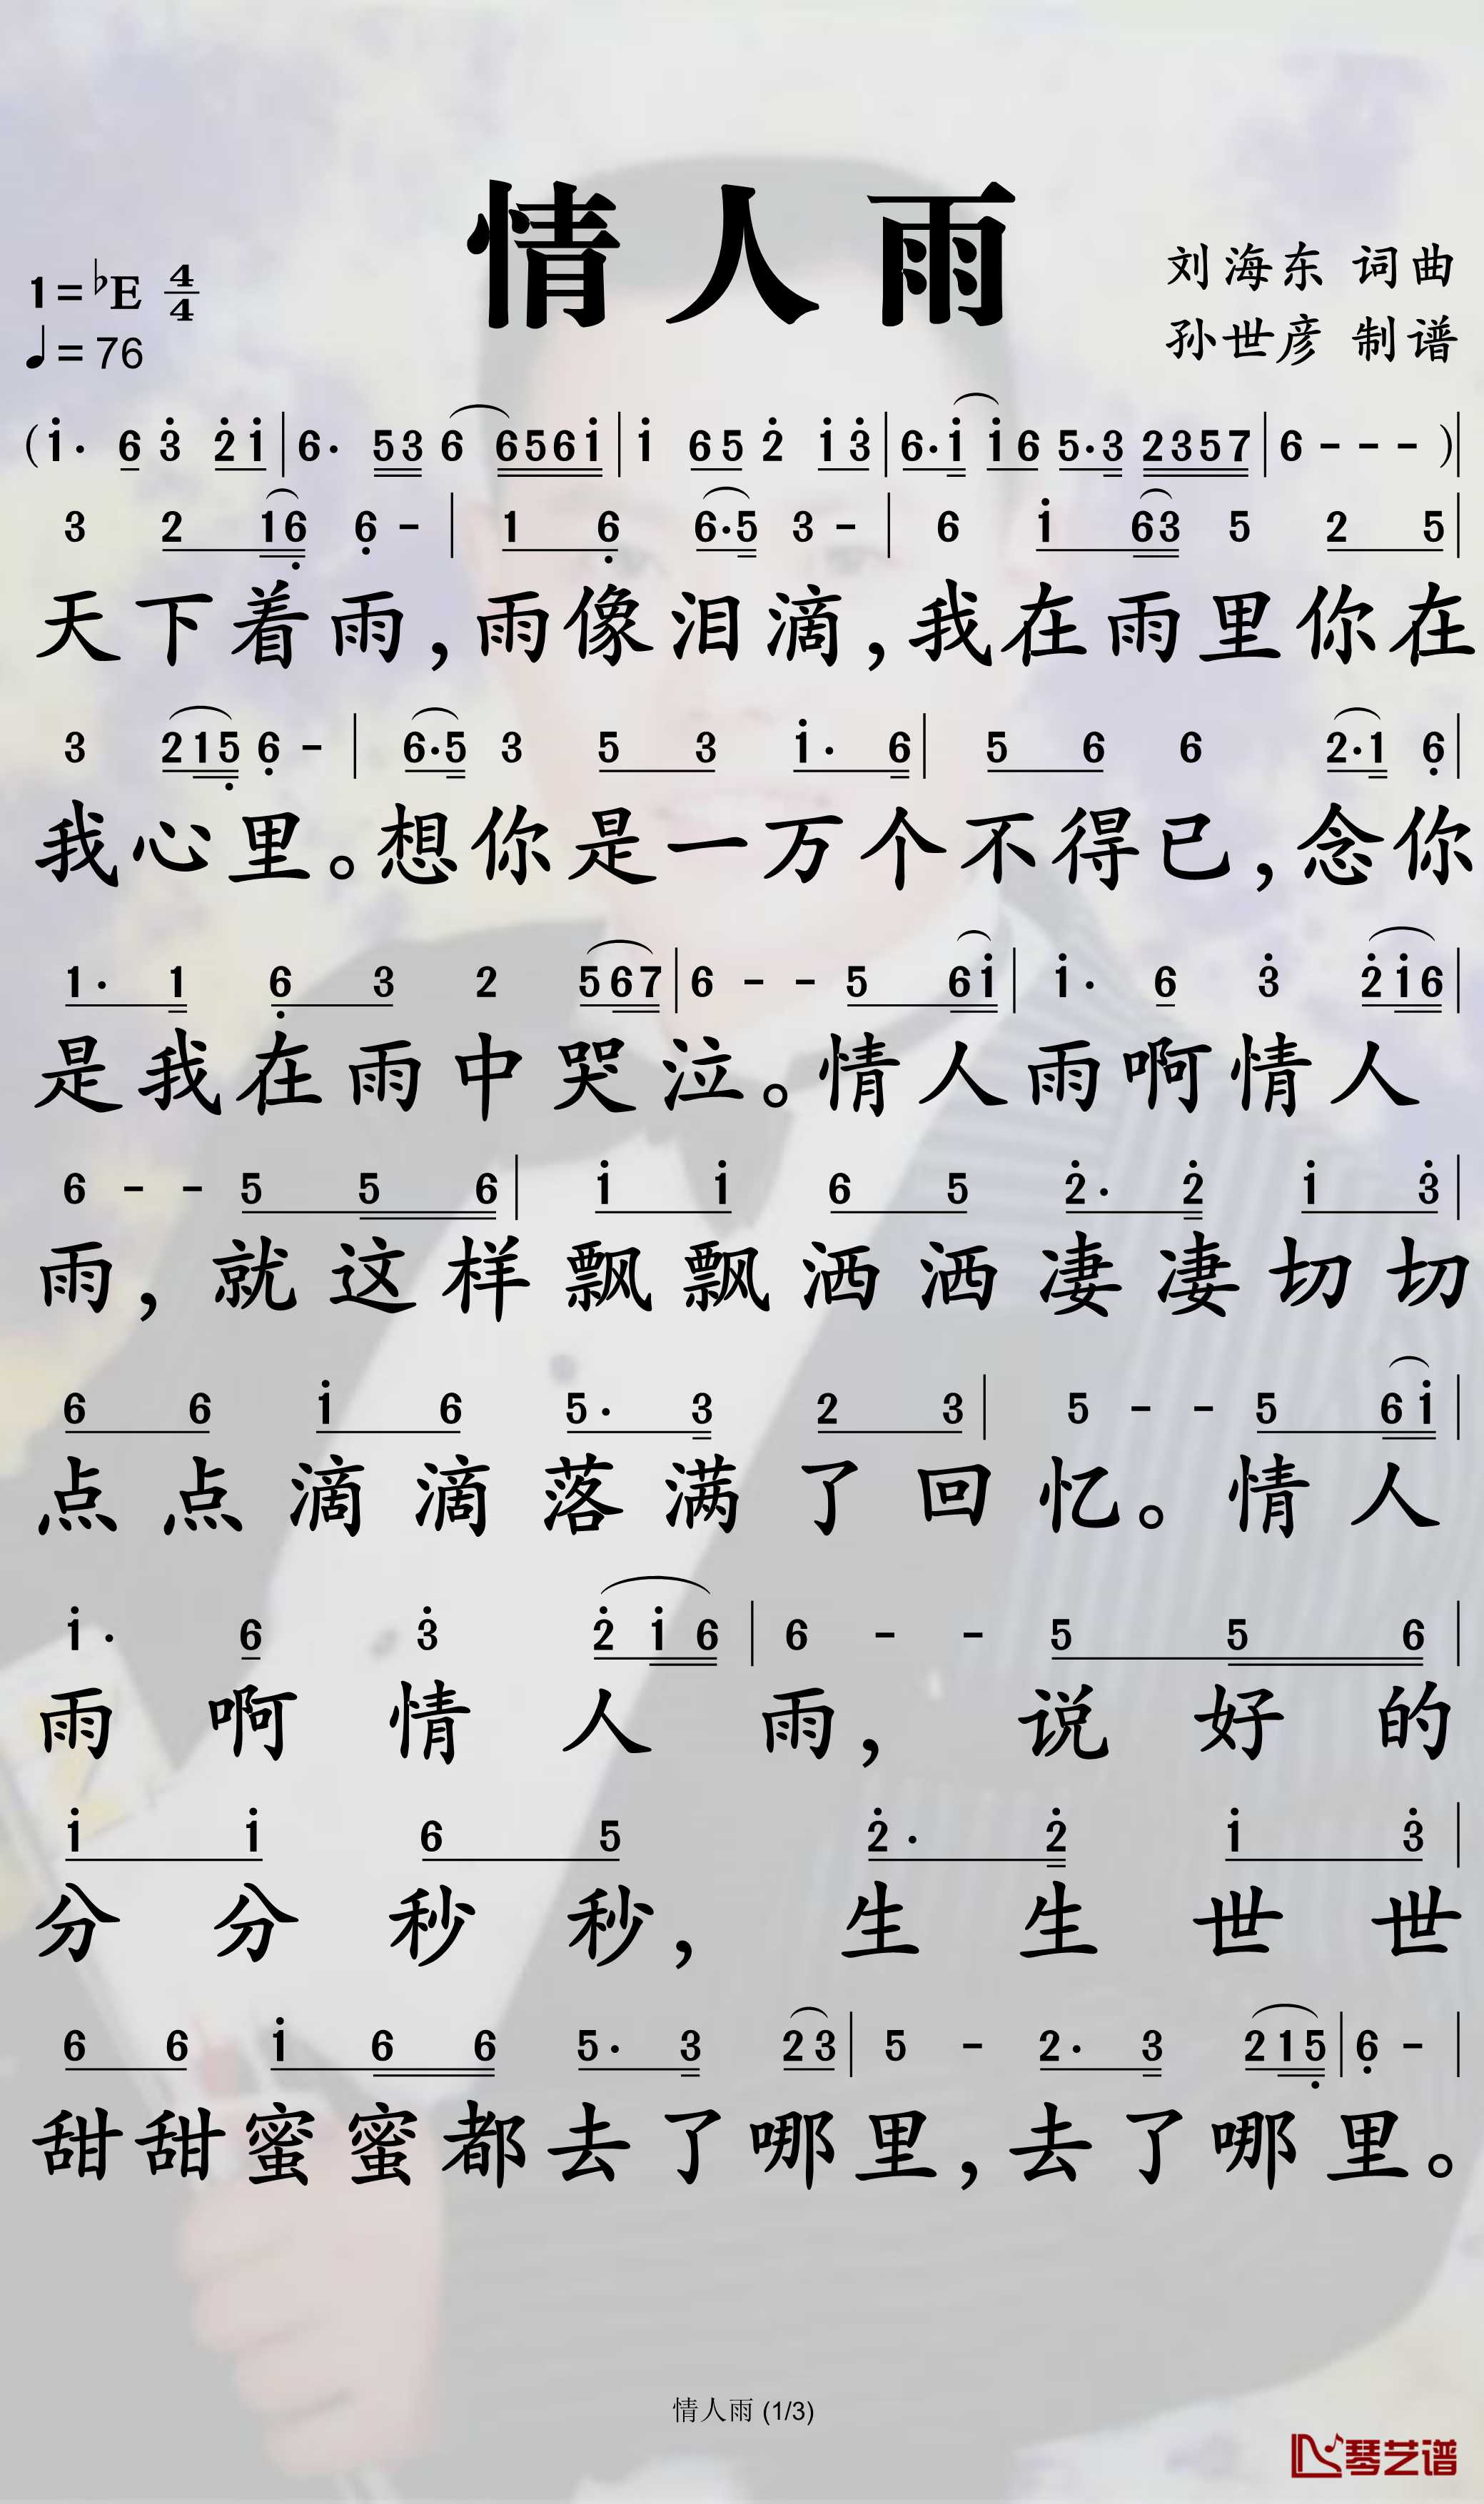 情人雨
1=♭E 4/4
♩=76
刘海东 词曲
孙世彦 制谱
(i· 6 3̇ 2̇ i | 6· 5 3 6 6 5 6 i | i 6 5 2̇ i 3̇ | 6· i i 6 5· 3 2 3 5 7 | 6 - - - ) |
3 2 1 6̣ 6̣ - | 1 6̣ 6· 5 3 - | 6 i 6 3 5 2 5 |
天下着雨,雨像泪滴,我在雨里你在
3 2 1 5̣ 6̣ - | 6· 5 3 5 3 i· 6 | 5 6 6 2· 1 6̣ |
我心里。想你是一万个不得已,念你
1· 1 6̣ 3 2 5 6 7 | 6 - - 5 6 i | i· 6 3̇ 2̇ i 6 |
是我在雨中哭泣。情人雨啊情人
6 - - 5 5 6 | i i 6 5 2̇· 2̇ i 3̇ |
雨,就这样飘飘洒洒凄凄切切
6 6 i 6 5· 3 2 3 | 5 - - 5 6 i |
点点滴滴落满了回忆。情人
i· 6 3̇ 2̇ i 6 | 6 - - 5 5 6 |
雨啊情人雨,说好的
i i 6 5 2̇· 2̇ i 3̇ |
分分秒秒,生生世世
6 6 i 6 6 5· 3 2 3 | 5 - 2· 3 2 1 5̣ | 6̣ - |
甜甜蜜蜜都去了哪里,去了哪里。
情人雨 (1/3)
琴艺谱